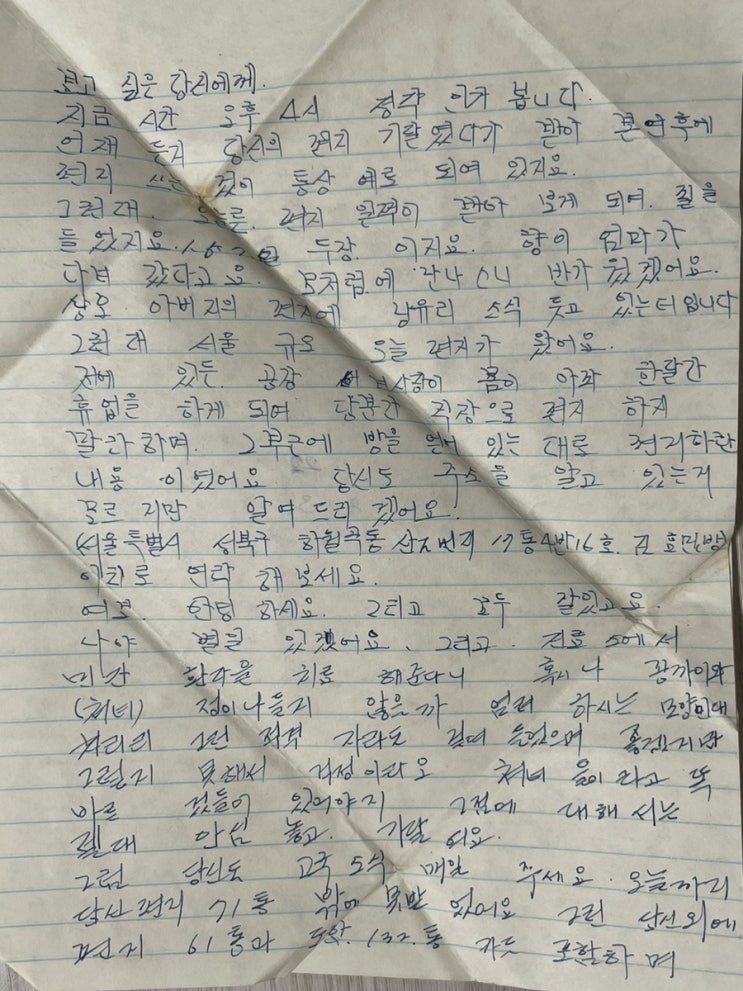 보고 싶은 당신에게.
지금 시간 오후 4시 정각 인가 봅니다.
언재 든지 당신의 편지 기달렸다가 받아 본 연후에
편지 쓰는 것이 통상 예로 되여 있지요.
그런대. 오늘은. 편지 일찍이 받아 보게 되여. 필을
들었지요. 두장. 이지요. 향이 엄마가
다녀 갔다고요. 모처럼에 만나스니 반가 웠겠어요.
상호 아버지의 편지에 남유리 소식 듯고 있는터입니다
그런대 서울 규호 오늘 편지가 왔어요.
저에 있든. 공장 사장이 몸이 아파 한달간
휴업을 하게 되여 당분간 직장으로 편지 하지
말라하며. 그부근에 방을 얻어 있는 대로 편지하란
내용 이였어요 당신도 주소를 알고 있는지
모르지만 알여 드리 겠어요.
서울특별시 성북구 하월곡동 산 번지 17통4반16호. 김 방
이리로 연락 해보세요.
여보. 안영 하세요. 그리고 모두 잘있고요.
나야 별일 있겠어요. 그리고. 치료소에서
미간 환자을 치료 해준다니 혹시나
(처녀) 정이나들지 않을까 염려 하시는 모양인대
차라리 그런 적격 자라도 있으며 좋겠지만
그렇지 못해서 걱정이라오 처녀 들이라고 똑
바른 것들이 있어야지 그점에 대해서는
절대 안심 놓고. 기달 려요.
그럼 당신도 고국 소식 매일 주세요 오늘까지
당신 편지 71통 밖에 못받 었어요 그런 당신외에
편지 61통과 도합. 132.통 포함하며